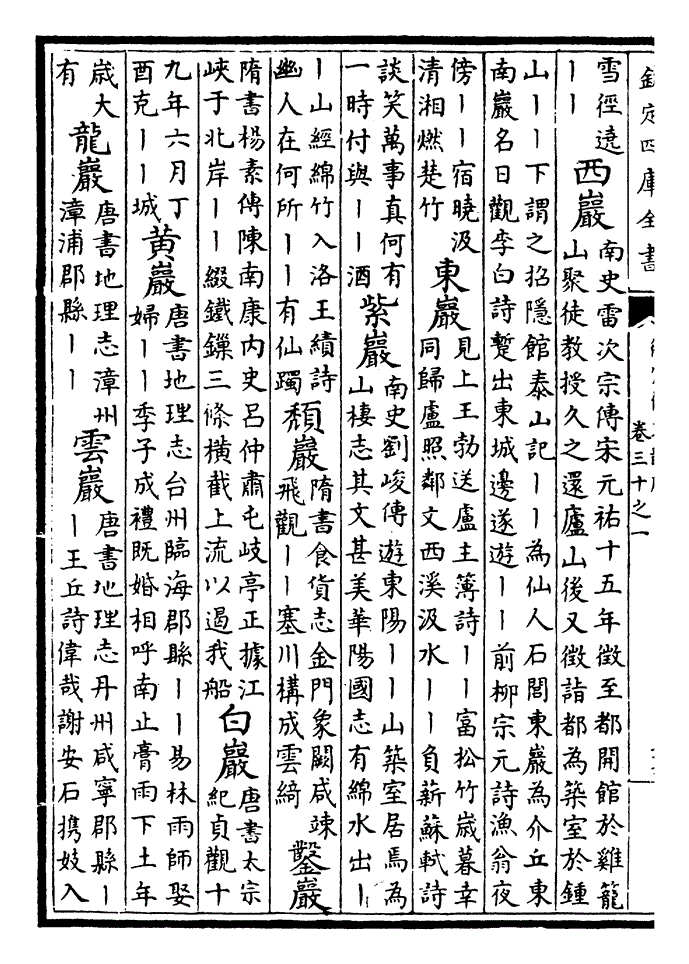 欽定四庫全書
卷三十之一
雪徑遶
丨丨
西巖
南史雷次宗傳宋元祐十五年徵至都開館於雞籠
山聚徒教授久之還廬山後又徵詣都為築室於鍾
山丨丨下謂之招隱館泰山記丨丨為仙人石閭東巖為介丘東
南巖名曰觀李白詩蹔出東城邊遂遊丨丨前柳宗元詩漁翁夜
傍丨丨宿曉汲
清湘燃楚竹
東巖
見上王勃送盧主簿詩丨丨富松竹歲暮幸
同歸盧照鄰文西溪汲水丨丨負薪蘇軾詩
談笑萬事真何有
一時付與丨丨酒
紫巖
南史劉峻傳遊東陽丨丨山築室居焉為
山棲志其文甚美華陽國志有綿水出丨
丨山經綿竹入洛王績詩
幽人在何所丨丨有仙躅
頹巖
隋書食貨志金門象闕咸竦
飛觀丨丨塞川構成雲綺
鑿巖
隋書楊素傳陳南康內史呂仲肅屯岐亭正據江
峽于北岸丨丨綴鐵鏁三條橫截上流以遏我船
白巖
唐書太宗
紀貞觀十
九年六月丁
酉克丨丨城
黃巖
唐書地理志台州臨海郡縣丨丨易林雨師娶
婦丨丨季子成禮既婚相呼南止膏雨下土年
歳大
有
龍巖
唐書地理志漳州
漳浦郡縣丨丨
雲巖
唐書地理志丹州咸寧郡縣丨
丨王丘詩偉哉謝安石携妓入